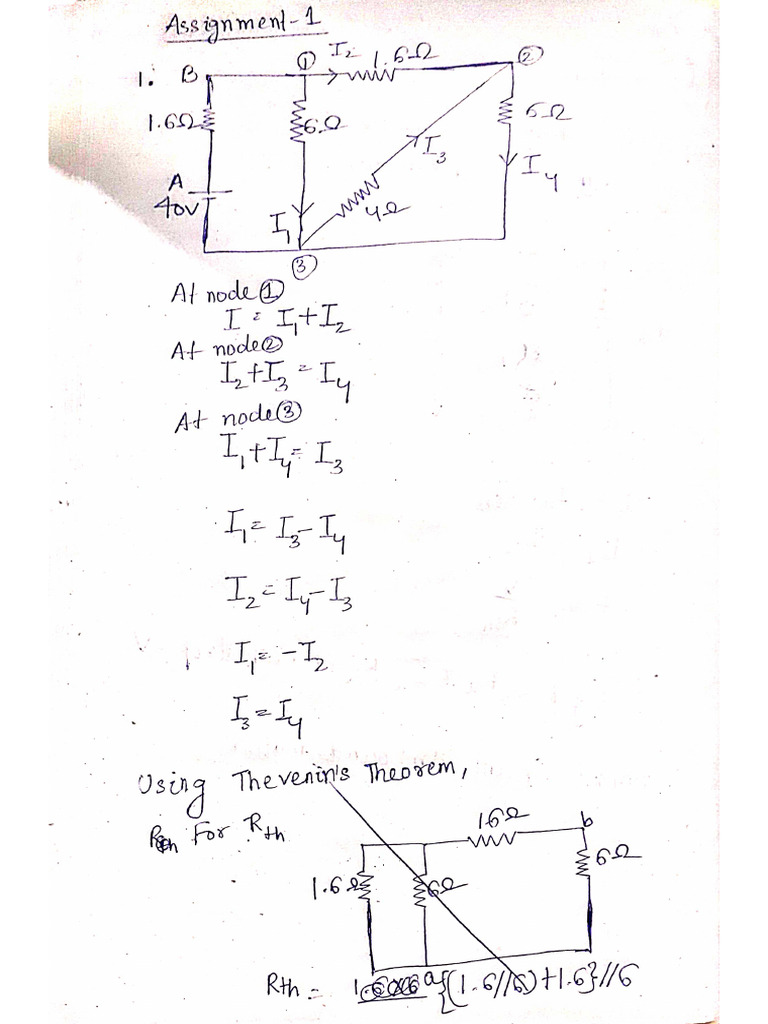 Assignment-1
1.
B
① I₂ 1.6Ω ②
1.6Ω 6Ω 6Ω
I₃ I₄
A
40V
4Ω
I₁
③
At node ①
I = I₁+I₂
At node②
I₂+I₃ = I₄
At node③
I₁+I₄= I₃
I₁= I₃-I₄
I₂= I₄-I₃
I₁= -I₂
I₃=I₄
Using Thevenin's Theorem,
For Rth
1.6Ω b
1.6Ω 6Ω 6Ω
a
Rth = {(1.6//6)+1.6}//6